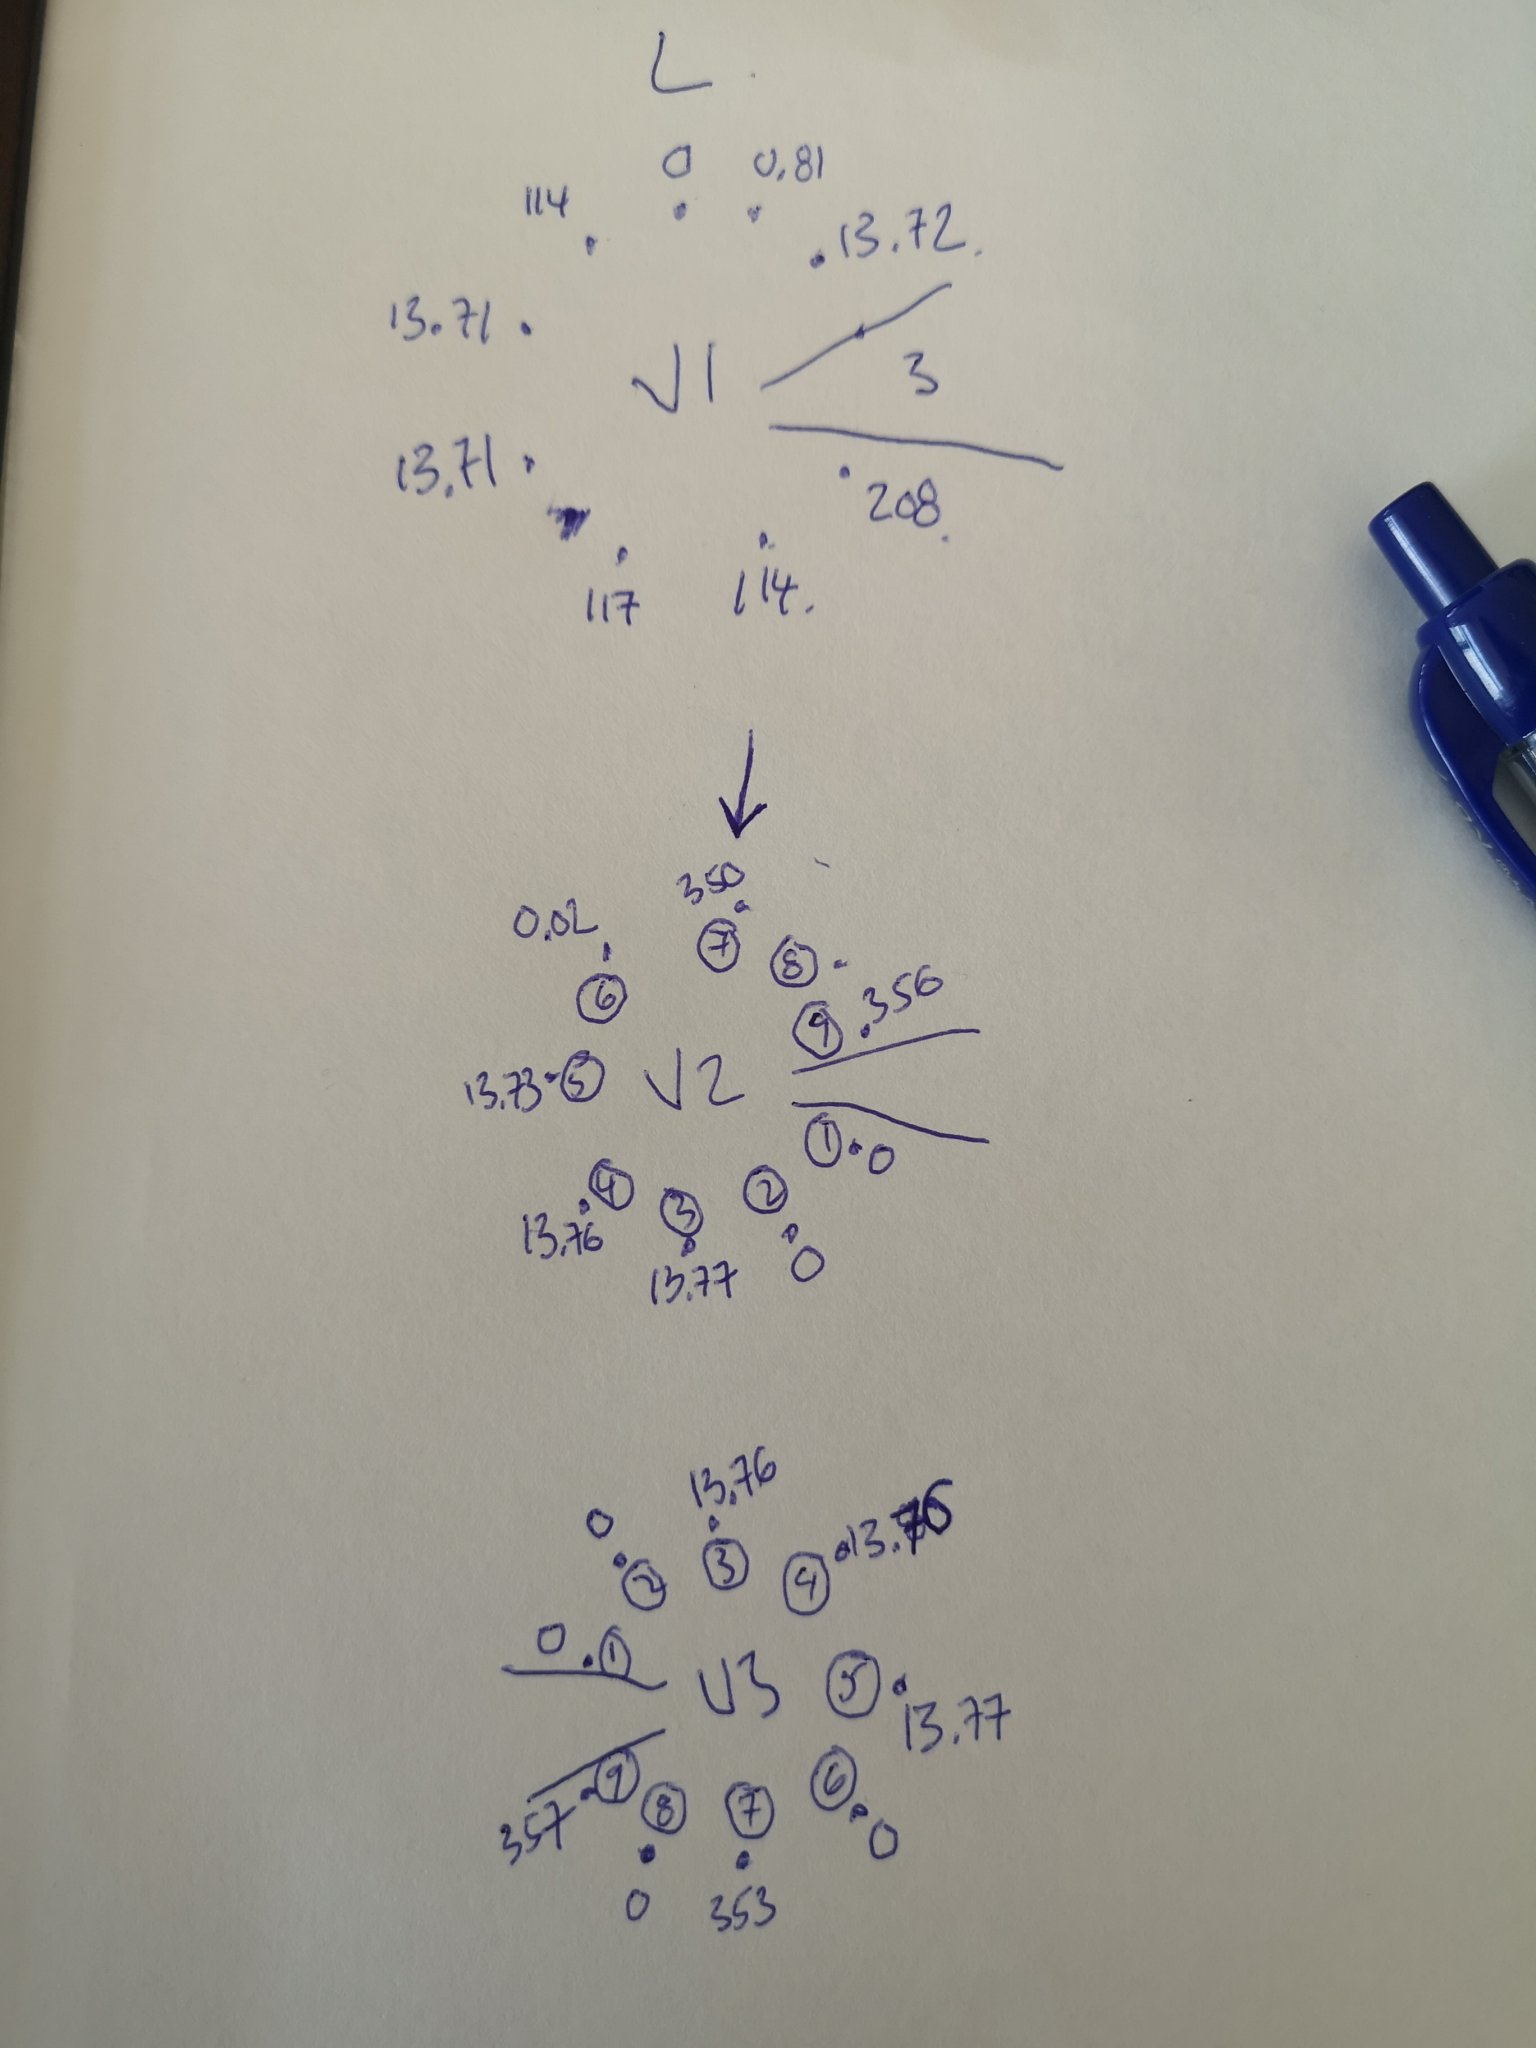 L
0 0.81
114
13.72
13.71
V1 3
13.71
208
117 114.
350
0.02
7 8
356
6 9
13.73 5 V2
1 0
4 3 2
13.76
13.77 0
13.76
0
2 3 4
0 1
V3 5
13.77
9 8 7 6
357
0 353 0